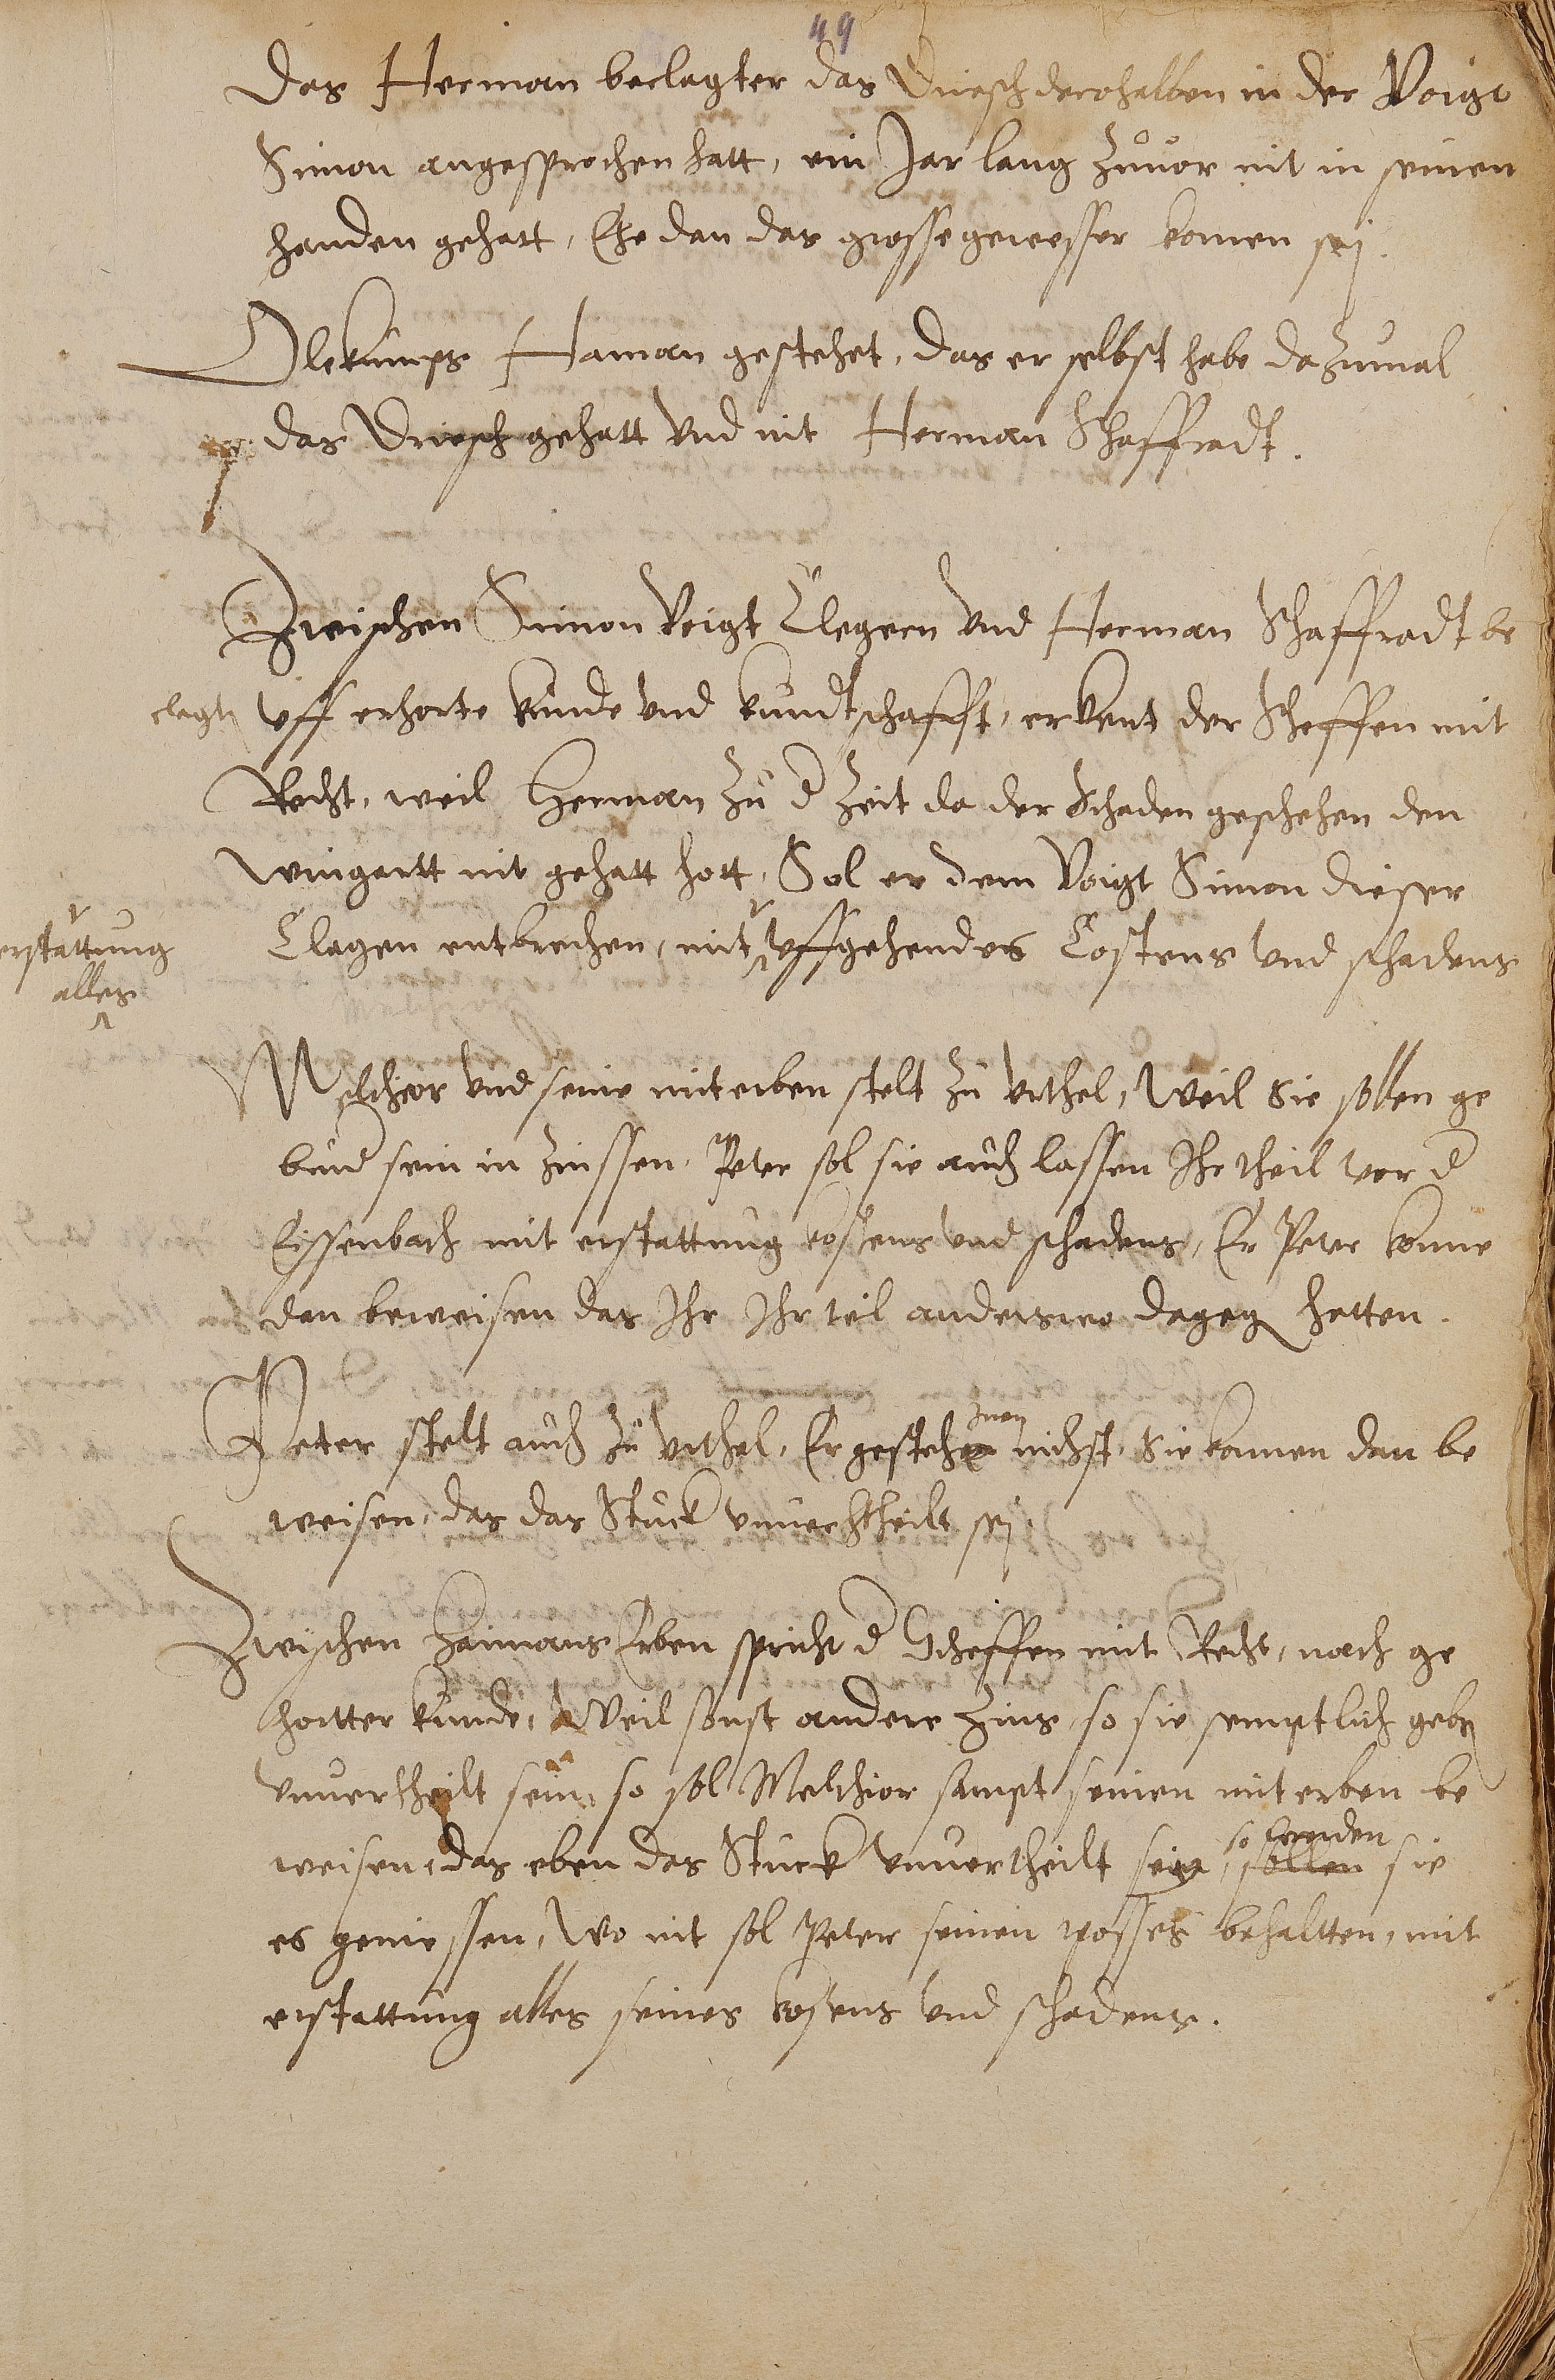 49
Das Herman beclagter das Driesch derohalben in der Voigt
Simon angesprochen hatt, ein Jar lang zuuor nit in seinen
handen gehatt, Ehe dan das grosse gewesser komen sej.
Olekumps Haman gestehet, das er selbst habe dazumal
das Driesch gehatt vnd nit Herman Schaffradt.
Zwischen Simon Voigt Clegern vnd Herman Schaffradt be
clagtn vff erhorte kunde vnd kundtschafft, erkent der Scheffen mit
Recht, weil Herman zu d Zeit da der Schaden geschehen den
wingartt nit gehatt hott, Sol er dem Voigt Simon dieser
Clagen entbrechen, mit vffgehendes Costens vnd schadens
erstattung
alles
Melchior vnd seine miterben stelt zu vrthel, Weil Sie sollen ge
bend sein in Zinssen, Peter sol sie auch lassen Ihr theil vor d
Eissenbach mit erstattung kostens vnd schadens, Er Peter konne
dan beweisen das Ihr Ihr teil anderswo dagegen hetten.
Peter stelt auch zu vrthel, Er gestehe Inen nichst, Sie konnen dan be
weisen, das das Stuck vnuerhtheilt sej.
Zwischen Haimans Erben spricht d Scheffen mit Recht, nach ge
hortter kunde, Weil sonst andere Zins, so sie semptlich geben
vnuertheilt sein, so sol Melchior sampt seinen miterben be
weisen, das eben das Stuck vnuertheilt seie, so
sollen sie
es geniessen, Wo nit sol Peter seinen posses behaltten, mit
erstattung alles seines kostens vnd schadens.